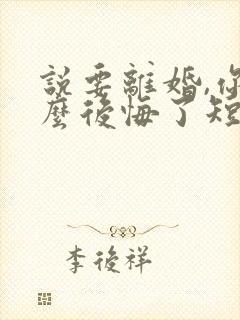 說要離婚,你
麼後悔了短
李後祥